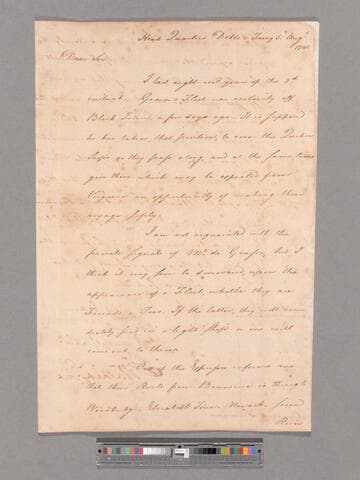 Head Quarters Dobbs's Ferry 5th Augt
1781
Dear Sir
I last night recd yours of the 3d
instant. Graves's Fleet was certainly off
Block Island a few days ago. It is supposed
to have taken that position, to cover the
Ships as they pass along, and at the same time
give those which may be expected from
Virginia an opportunity of making their
voyage safely.
I am not acquainted with the
private signals of Mr. de Grasse, but I
think it may soon be discovered, upon the
appearance of a Fleet, whether they are
Friends or Foes. If the latter, they will
send in a light Ship or no one will
come out to them.
One of the Expresses informs me
that their Route from Brunswick is through
Woodbridge Elizabeth Town Newark
River